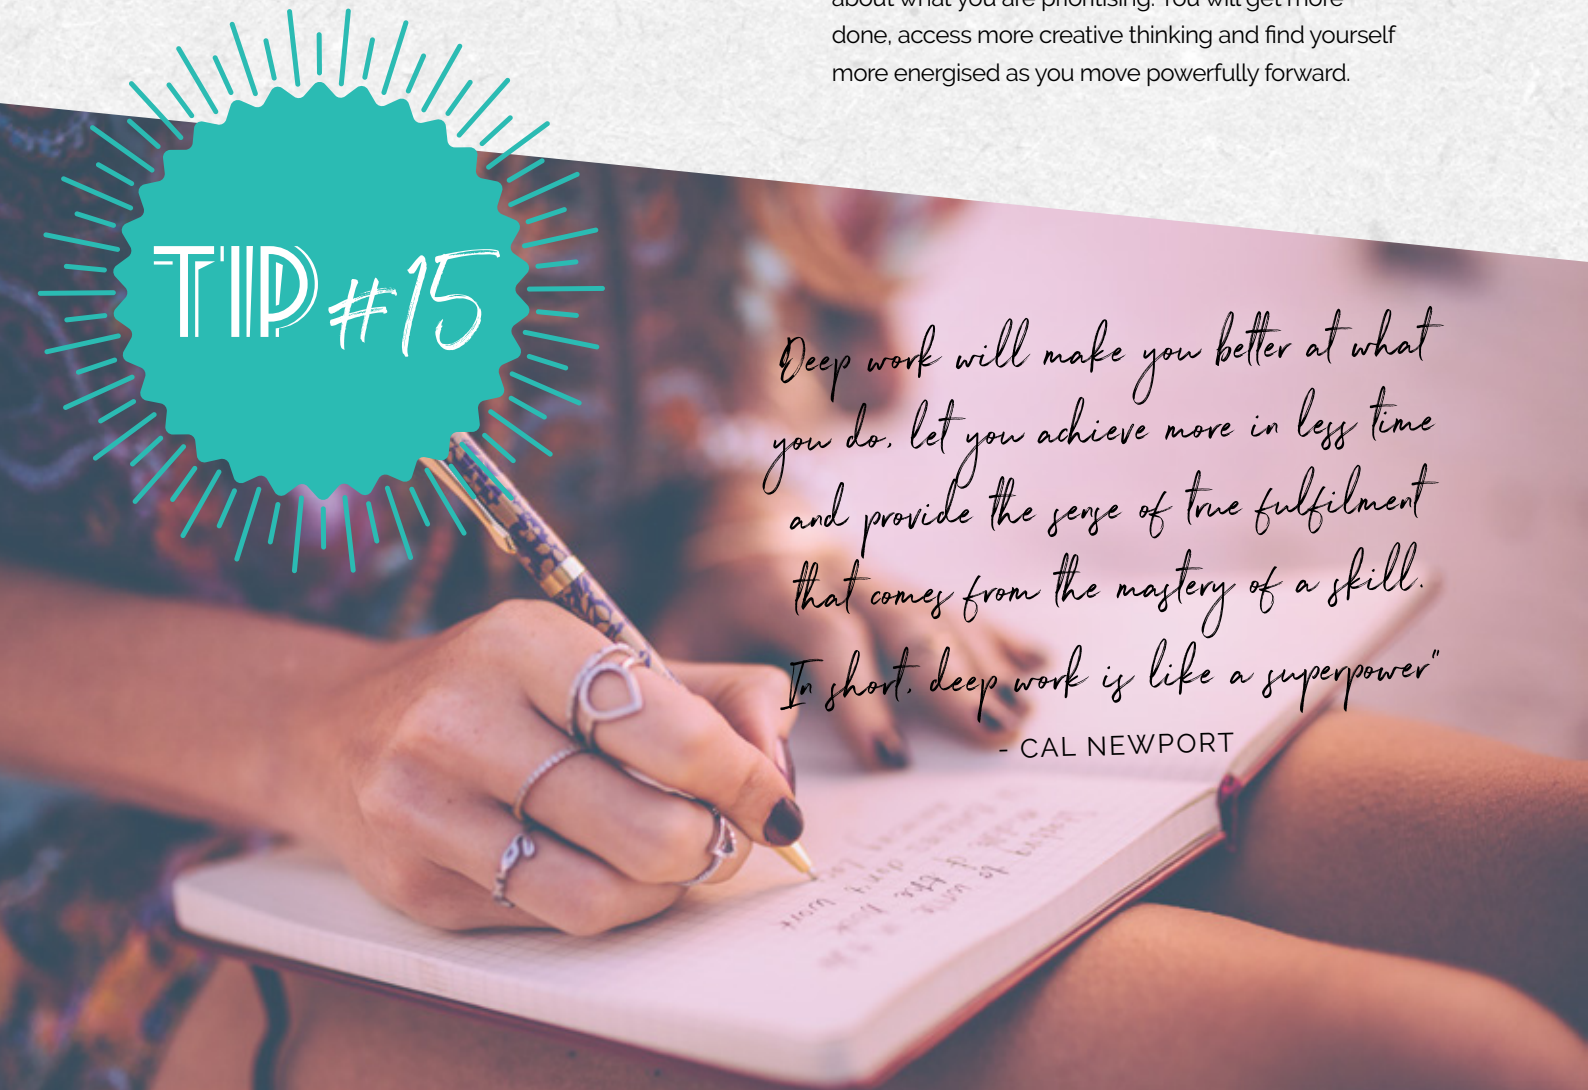 about what you are prioritising. You will get more
done, access more creative thinking and find yourself
more energised as you move powerfully forward.
TIP #15
Deep work will make you better at what
you do, let you achieve more in less time
and provide the sense of true fulfilment
that comes from the mastery of a skill.
In short, deep work is like a superpower"
- CAL NEWPORT